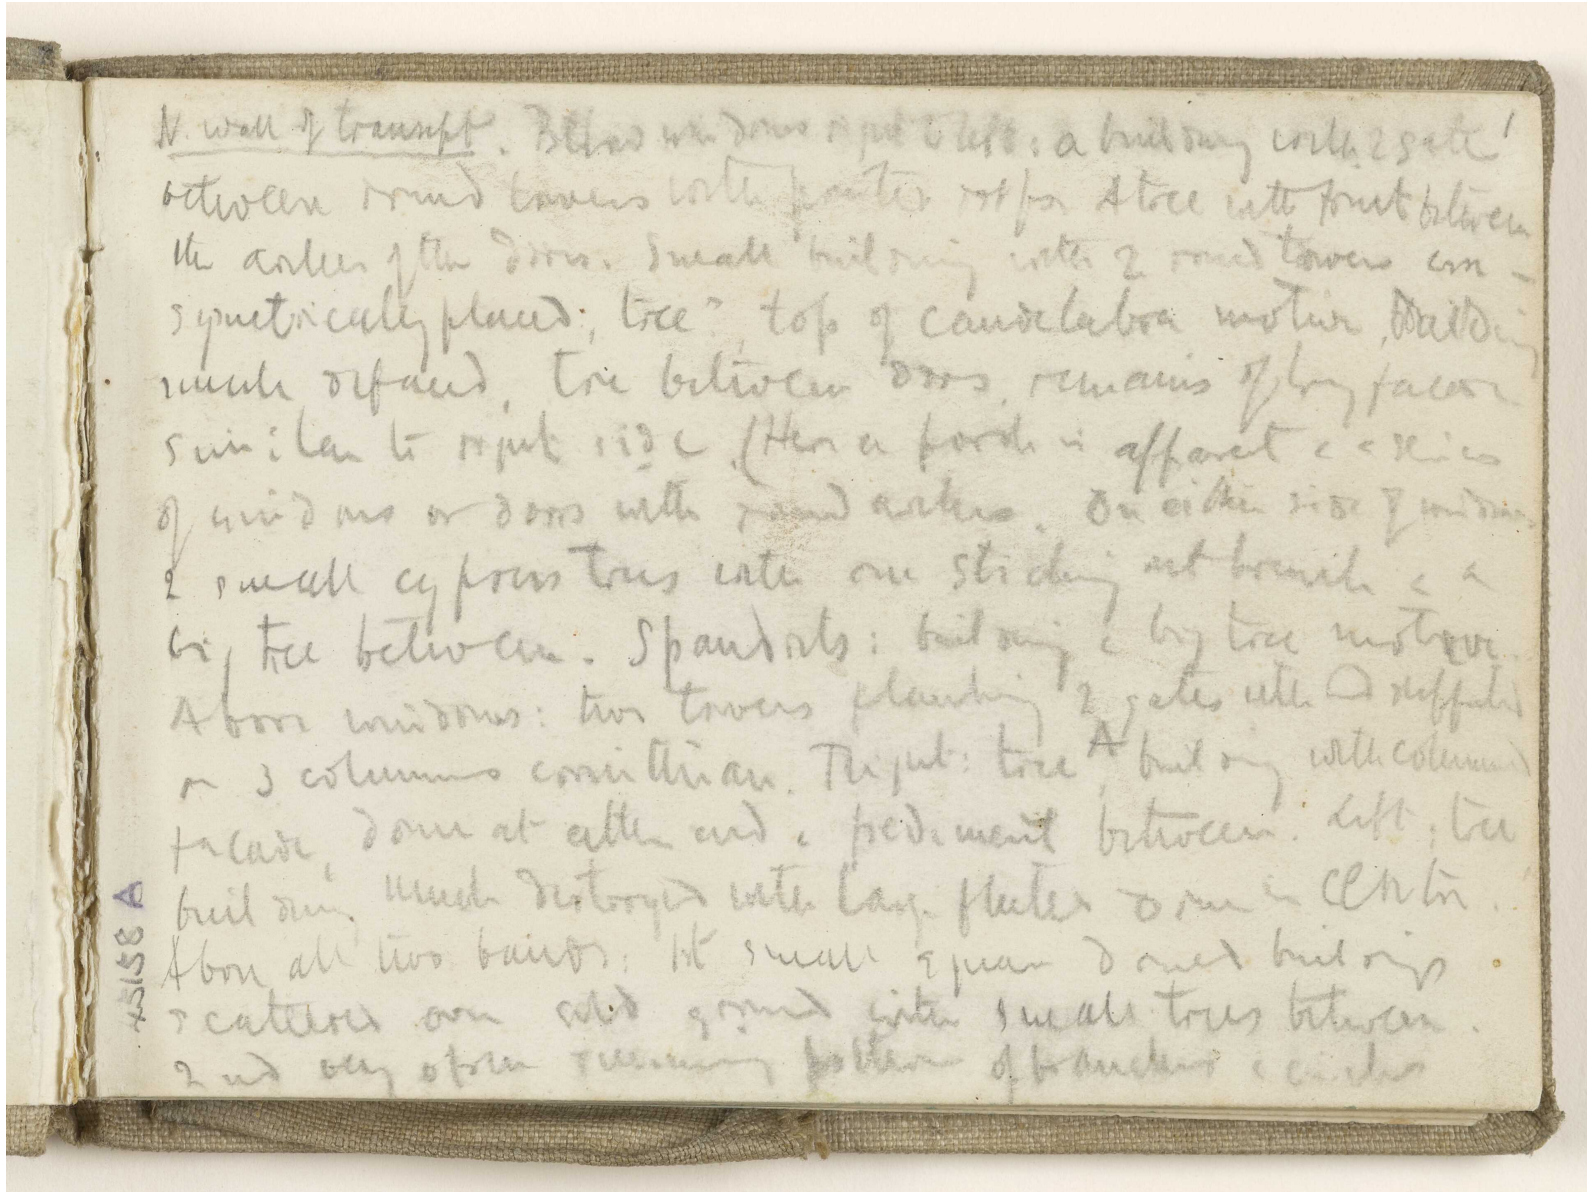 N. wall of transept. Below windows right to left: a building with 2 gates 1
between round towers with pointed roofs. A tree with fruit between
the arches of the doors. Small building with 2 round towers un-
symetrically placed, tree, top of candelabra motive, Building
much defaced, tree between doors, remains of long facade
similar to right side. (Here a porch is apparent & a series
of windows or doors with round arches. On either side of windows
2 small cypress trees with one sticking out branch & a
big tree between. Spandrels: building & big tree motive.
Above windows: two towers flanking 2 gates with supported
on 3 columns corinthian. To right: tree A building with columned
facade, dome at either end & pediment between. Left: tree
building much destroyed with large fluted dome in centre.
Above all two bands: 1st small square domed buildings
scattered over solid ground with small trees between.
2nd very open running pattern of branches & circles
+3158 A